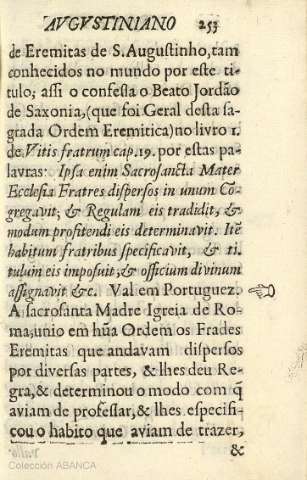 AVGVSTINIANO 253
de Eremitas de S. Augustinho, tam
conhecidos no mundo por este ti-
tulo; assi o confessa o Beato Jordão
de Saxonia, (que foi Geral desta sa-
grada Ordem Eremitica) no livro 1.
de Vitis fratrum cap. 19. por estas pa-
lavras: Ipsa enim Sacrosancta Mater
Ecclesia Fratres dispersos in unum Cō-
gregavit, & Regulam eis tradidit, &
modum profitendi eis determinavit. Itē
habitum fratribus specificavit, & ti-
tulum eis imposuit, & officium divinum
assignavit &c. Val em Portuguez. ☜
A sacrosanta Madre Igreja de Ro-
ma, unio em hũa Ordem os Frades
Eremitas que andavam dispersos
por diversas partes, & lhes deu Re-
gra, & determinou o modo com q̃
aviam de professar, & lhes especifi-
cou o habito que aviam de trazer,
&
Colección ABANCA